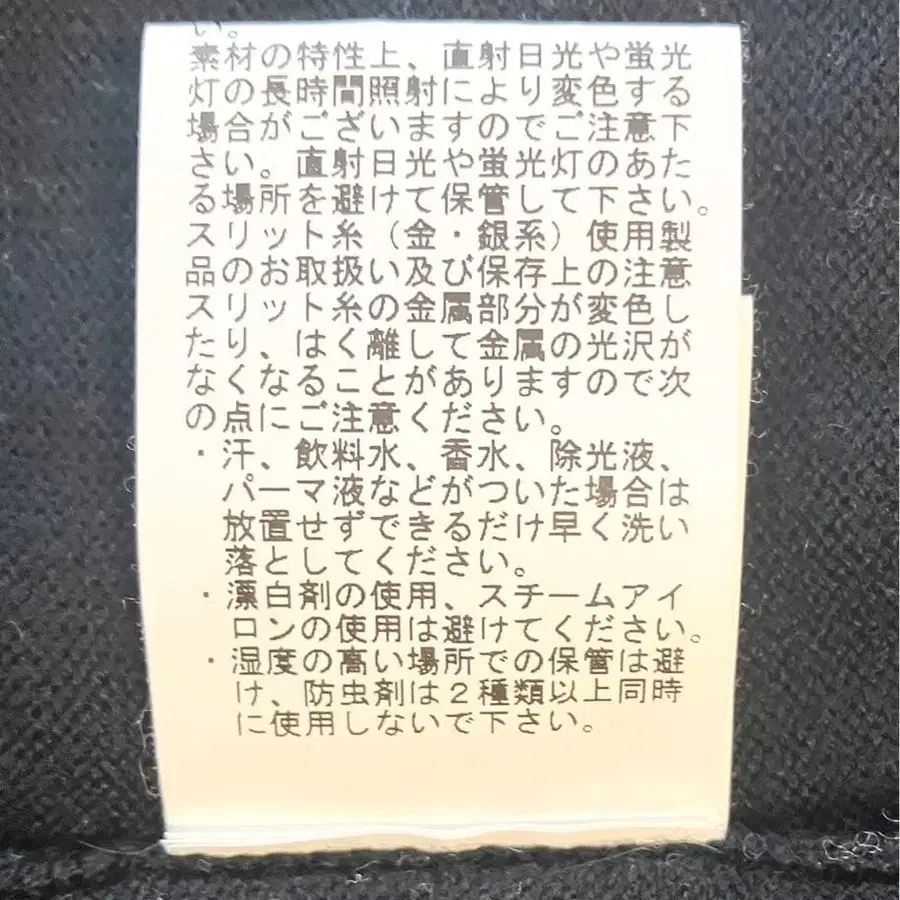 い。
素材の特性上、直射日光や蛍光
灯の長時間照射により変色する
場合がございますのでご注意下
さい。直射日光や蛍光灯のあた
る場所を避けて保管して下さい。
スリット糸（金・銀系）使用製
品のお取扱い及び保存上の注意
スリット糸の金属部分が変色し
たり、はく離して金属の光沢が
なくなることがありますので次
の点にご注意ください。
・汗、飲料水、香水、除光液、
パーマ液などがついた場合は
放置せずできるだけ早く洗い
落としてください。
・漂白剤の使用、スチームアイ
ロンの使用は避けてください。
・湿度の高い場所での保管は避
け、防虫剤は２種類以上同時
に使用しないで下さい。